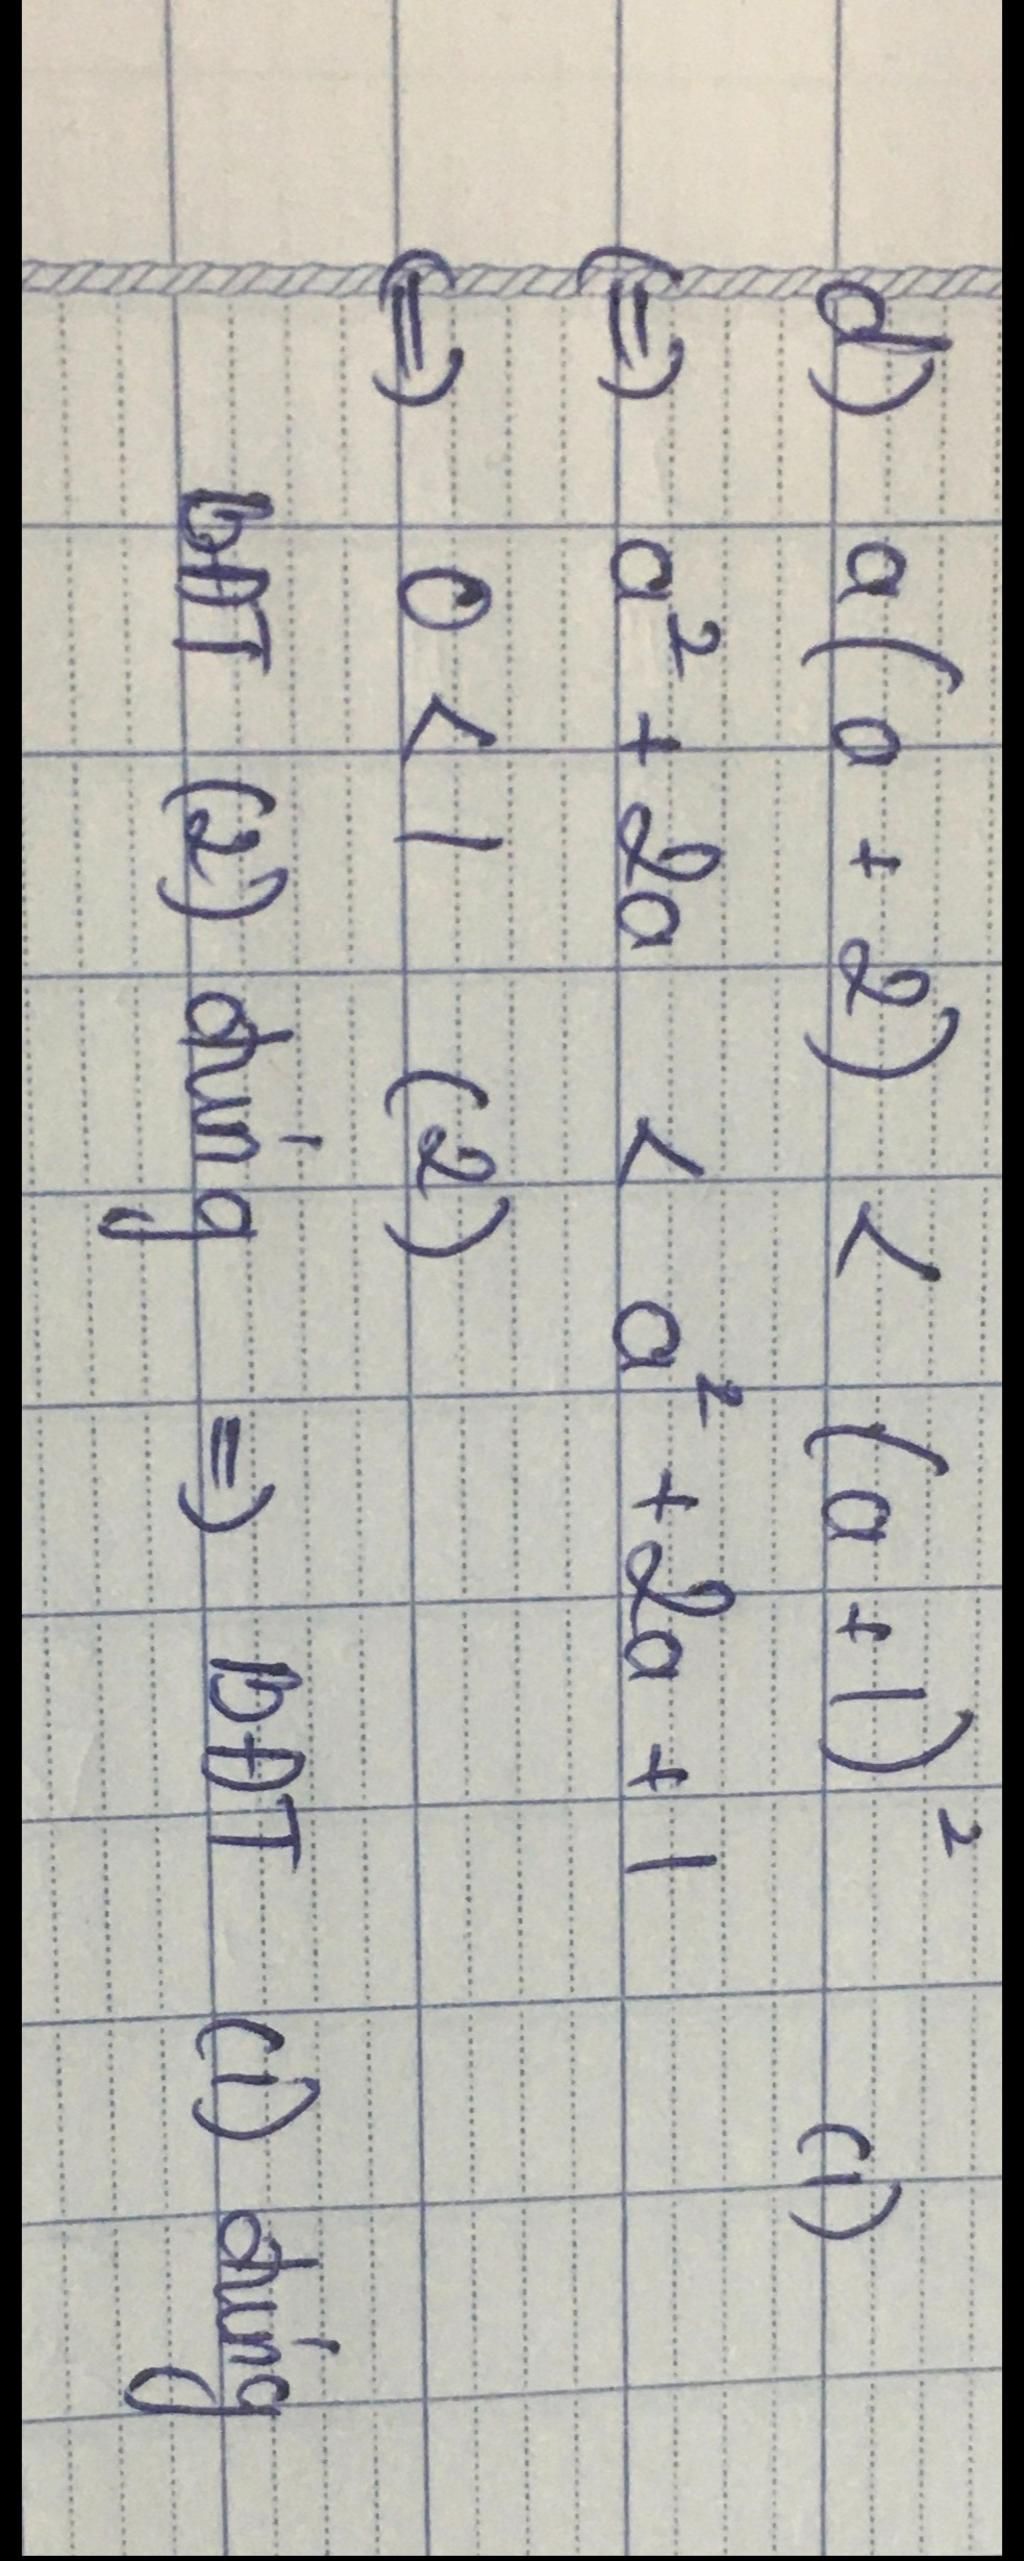 d) a(a + 2) < (a + 1)² (1)
(=) a² + 2a < a² + 2a + 1
(=) 0 < 1 (2)
bĐT (2) đúng =) bĐT (1) đúng